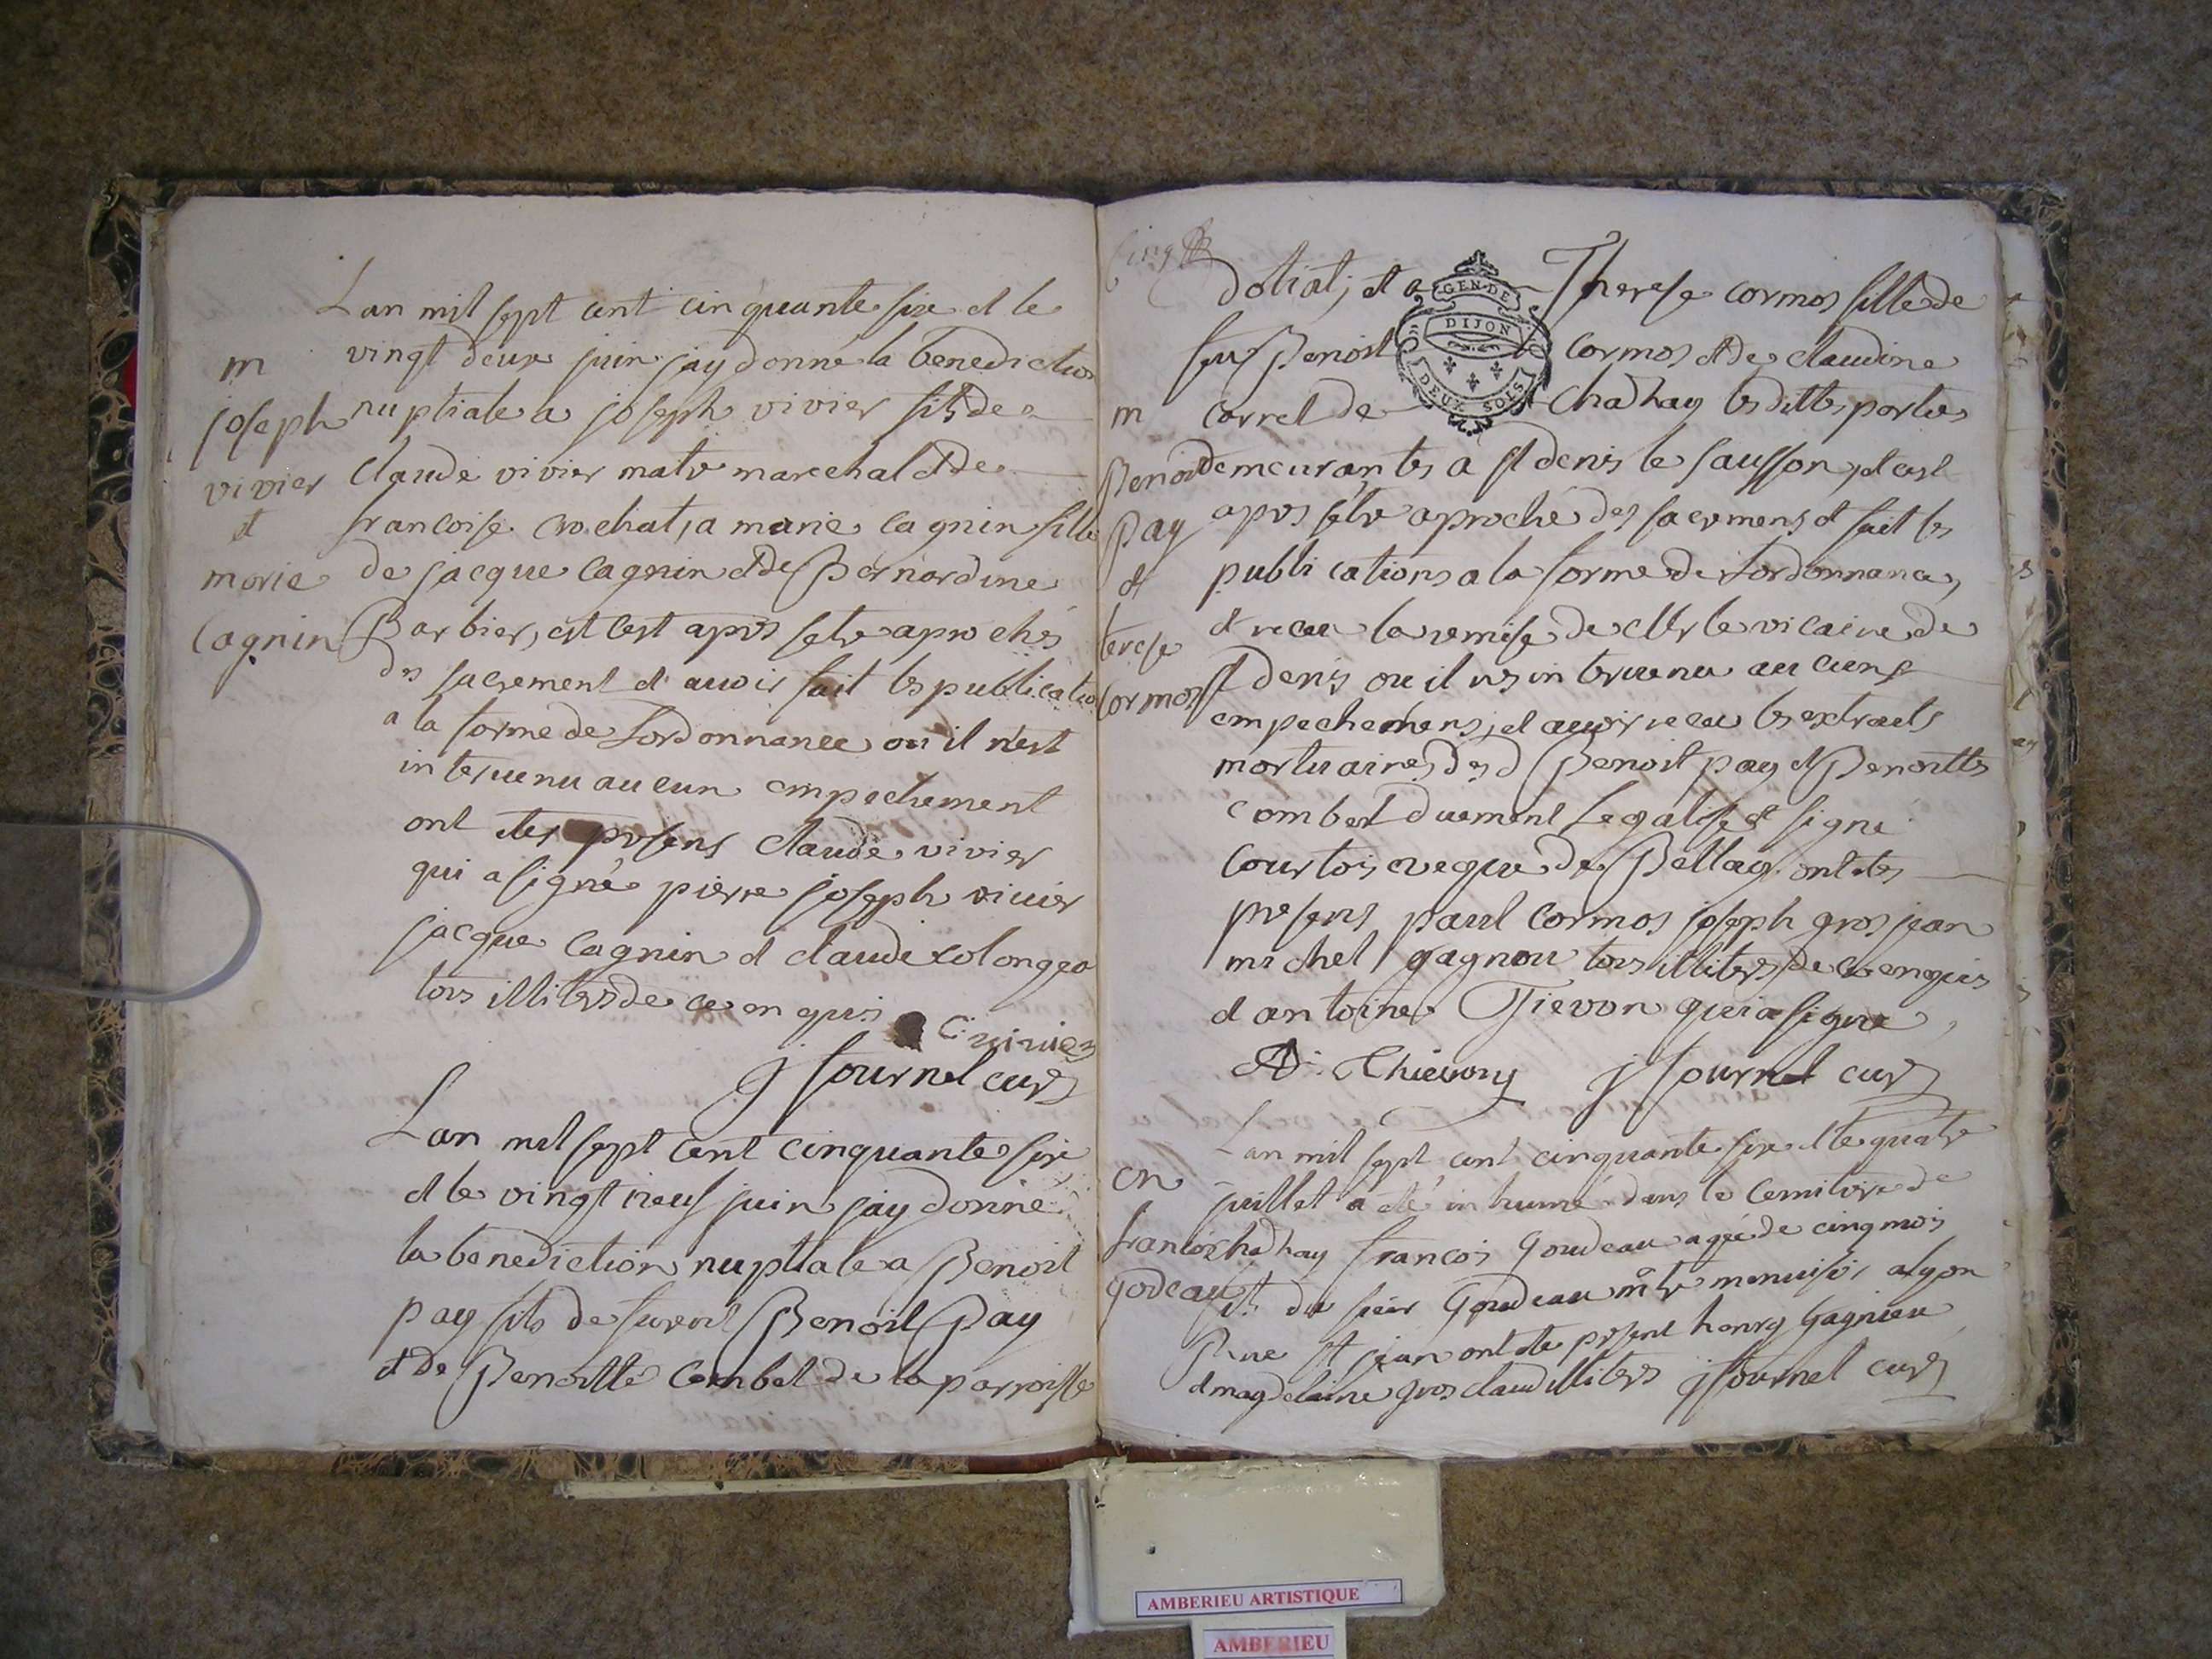 Lan mil sept cent cinquante six et le
m
vingt deux juin jay donné la benediction
joseph
nuptiale a joseph vivier fils de
vivier
claude vivier matre marechal et de
et
francoise crochat, a marie cagnin fille
marie
de jacque cagnin et de Bernardine
cagnin
Barbier, est cest apres setre aprochés
des sacrement et avoir fait les publication
a la forme de lordonnance ou il nest
intervenu aucun empechement
ont etes presens claude vivier
qui a signé pierre joseph vivier
jacque cagnin et claude colonge
tous illiteres de ce enquis
C. vivier
j fournel curé
Lan mil sept cent cinquante six
et le vingt neuf juin jay donné
la benediction nuptiale a Benoit
pay fils de Benoit Pay
et de Benoitte Combet de la parroisse
cinq
dotiat, et a Therese cormos fille de
feu Benoit Cormos et de claudine
m
carrel de Chadhay les dittes parties
Benoit
demeurantes a st denis le Sausson, et cest
pay
apres setre aproché des sacremens et fait les
et
publications a la forme de lordonnance,
terese
et receu la remise de Mr le vicaire de
cormos
st denis ou il nes intervenu aucuns
empechemens, et avoir receu les extraits
mortuaires des d Benoit pay et Benoitte
combet duement Legalisé et signé
Courtois eveque de Bellay. ont etes
presens paul cormos joseph gros jean
michel gagnou tous illiteres de ce enquis
et antoine Tievon qui a signé
A. Thievon j fournel curé
Lan mil sept cent cinquante six et le quatre
en
juillet a eté inhumé dans le Cemitere de
francois
chadhay francois Goudeau agé de cinq mois
godeau
fils du sieur Goudeau mtre menuisier a lyon
Rue st jean ont ete present henry gagnieu
et magdelaine gros claud illiteres j fournel curé
GEN. DE
DIJON
DEUX SOLS
AMBERIEU ARTISTIQUE
AMBERIEU